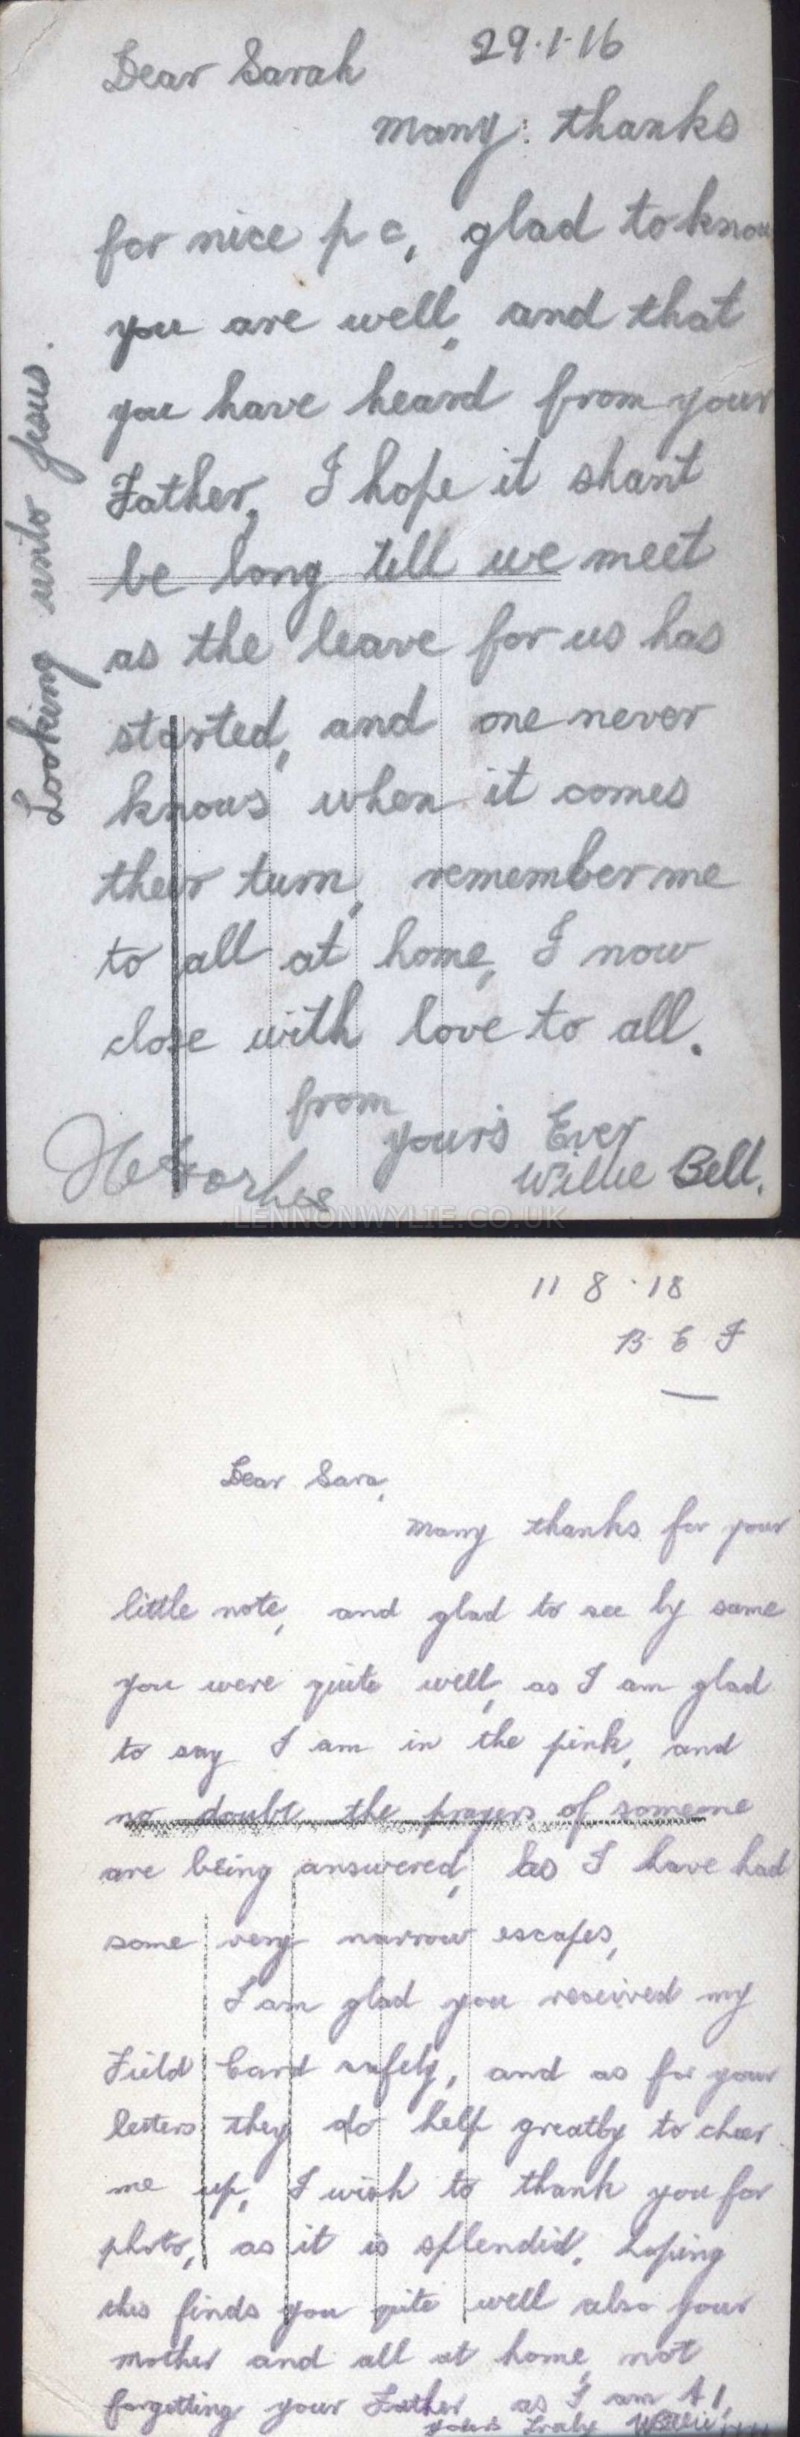 29.1.16
Dear Sarah
many thanks
for nice p c, glad to know
you are well, and that
you have heard from your
Father, I hope it shant
be long tell we meet
as the leave for us has
started, and one never
knows when it comes
their turn, remember me
to all at home, I now
close with love to all.
from
your's Ever
Willie Bell.
Looking unto Jesus.
LENNONWYLIE.CO.UK
11 8 . 18
B E F
Dear Sara,
Many thanks for your
little note, and glad to see by same
you were quite well, as I am glad
to say I am in the pink, and
no doubt the prayers of someone
are being answered, as I have had
some very narrow escapes,
I am glad you received my
Field Card safely, and as for your
letters they do help greatly to cheer
me up, I wish to thank you for
photo, as it is splendid, hoping
this finds you quite well also your
mother and all at home, not
forgetting your Father as I am A1,
yours Truly Willie